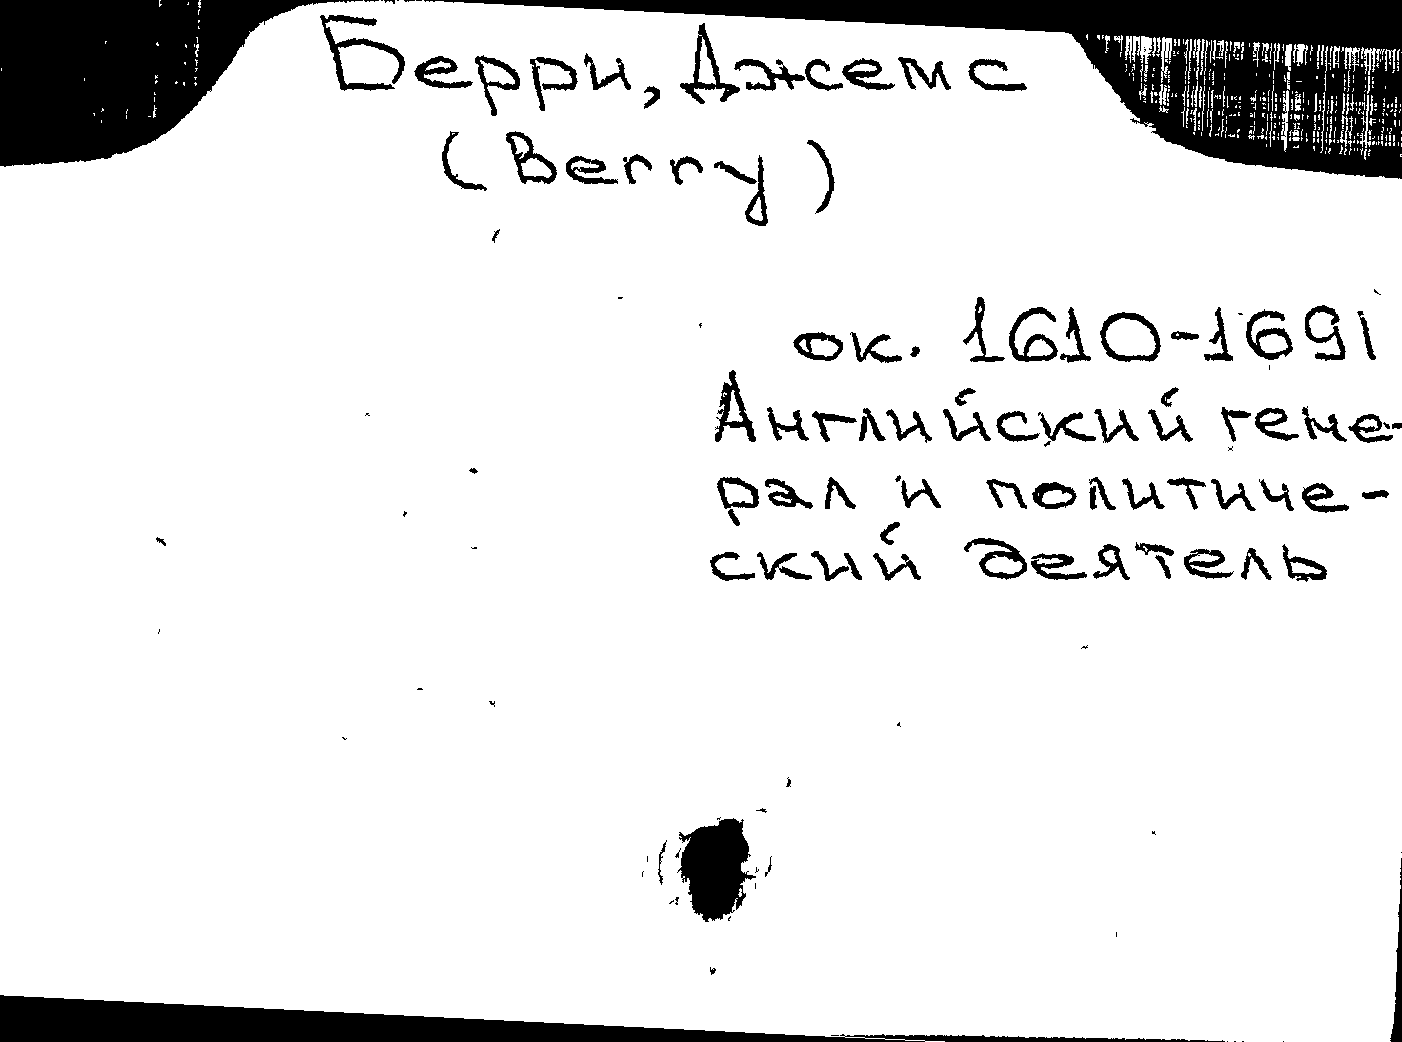 Берри, Джемс
(Berry)
ок. 1610-1691
Английский гене-
рал и политиче-
ский деятель